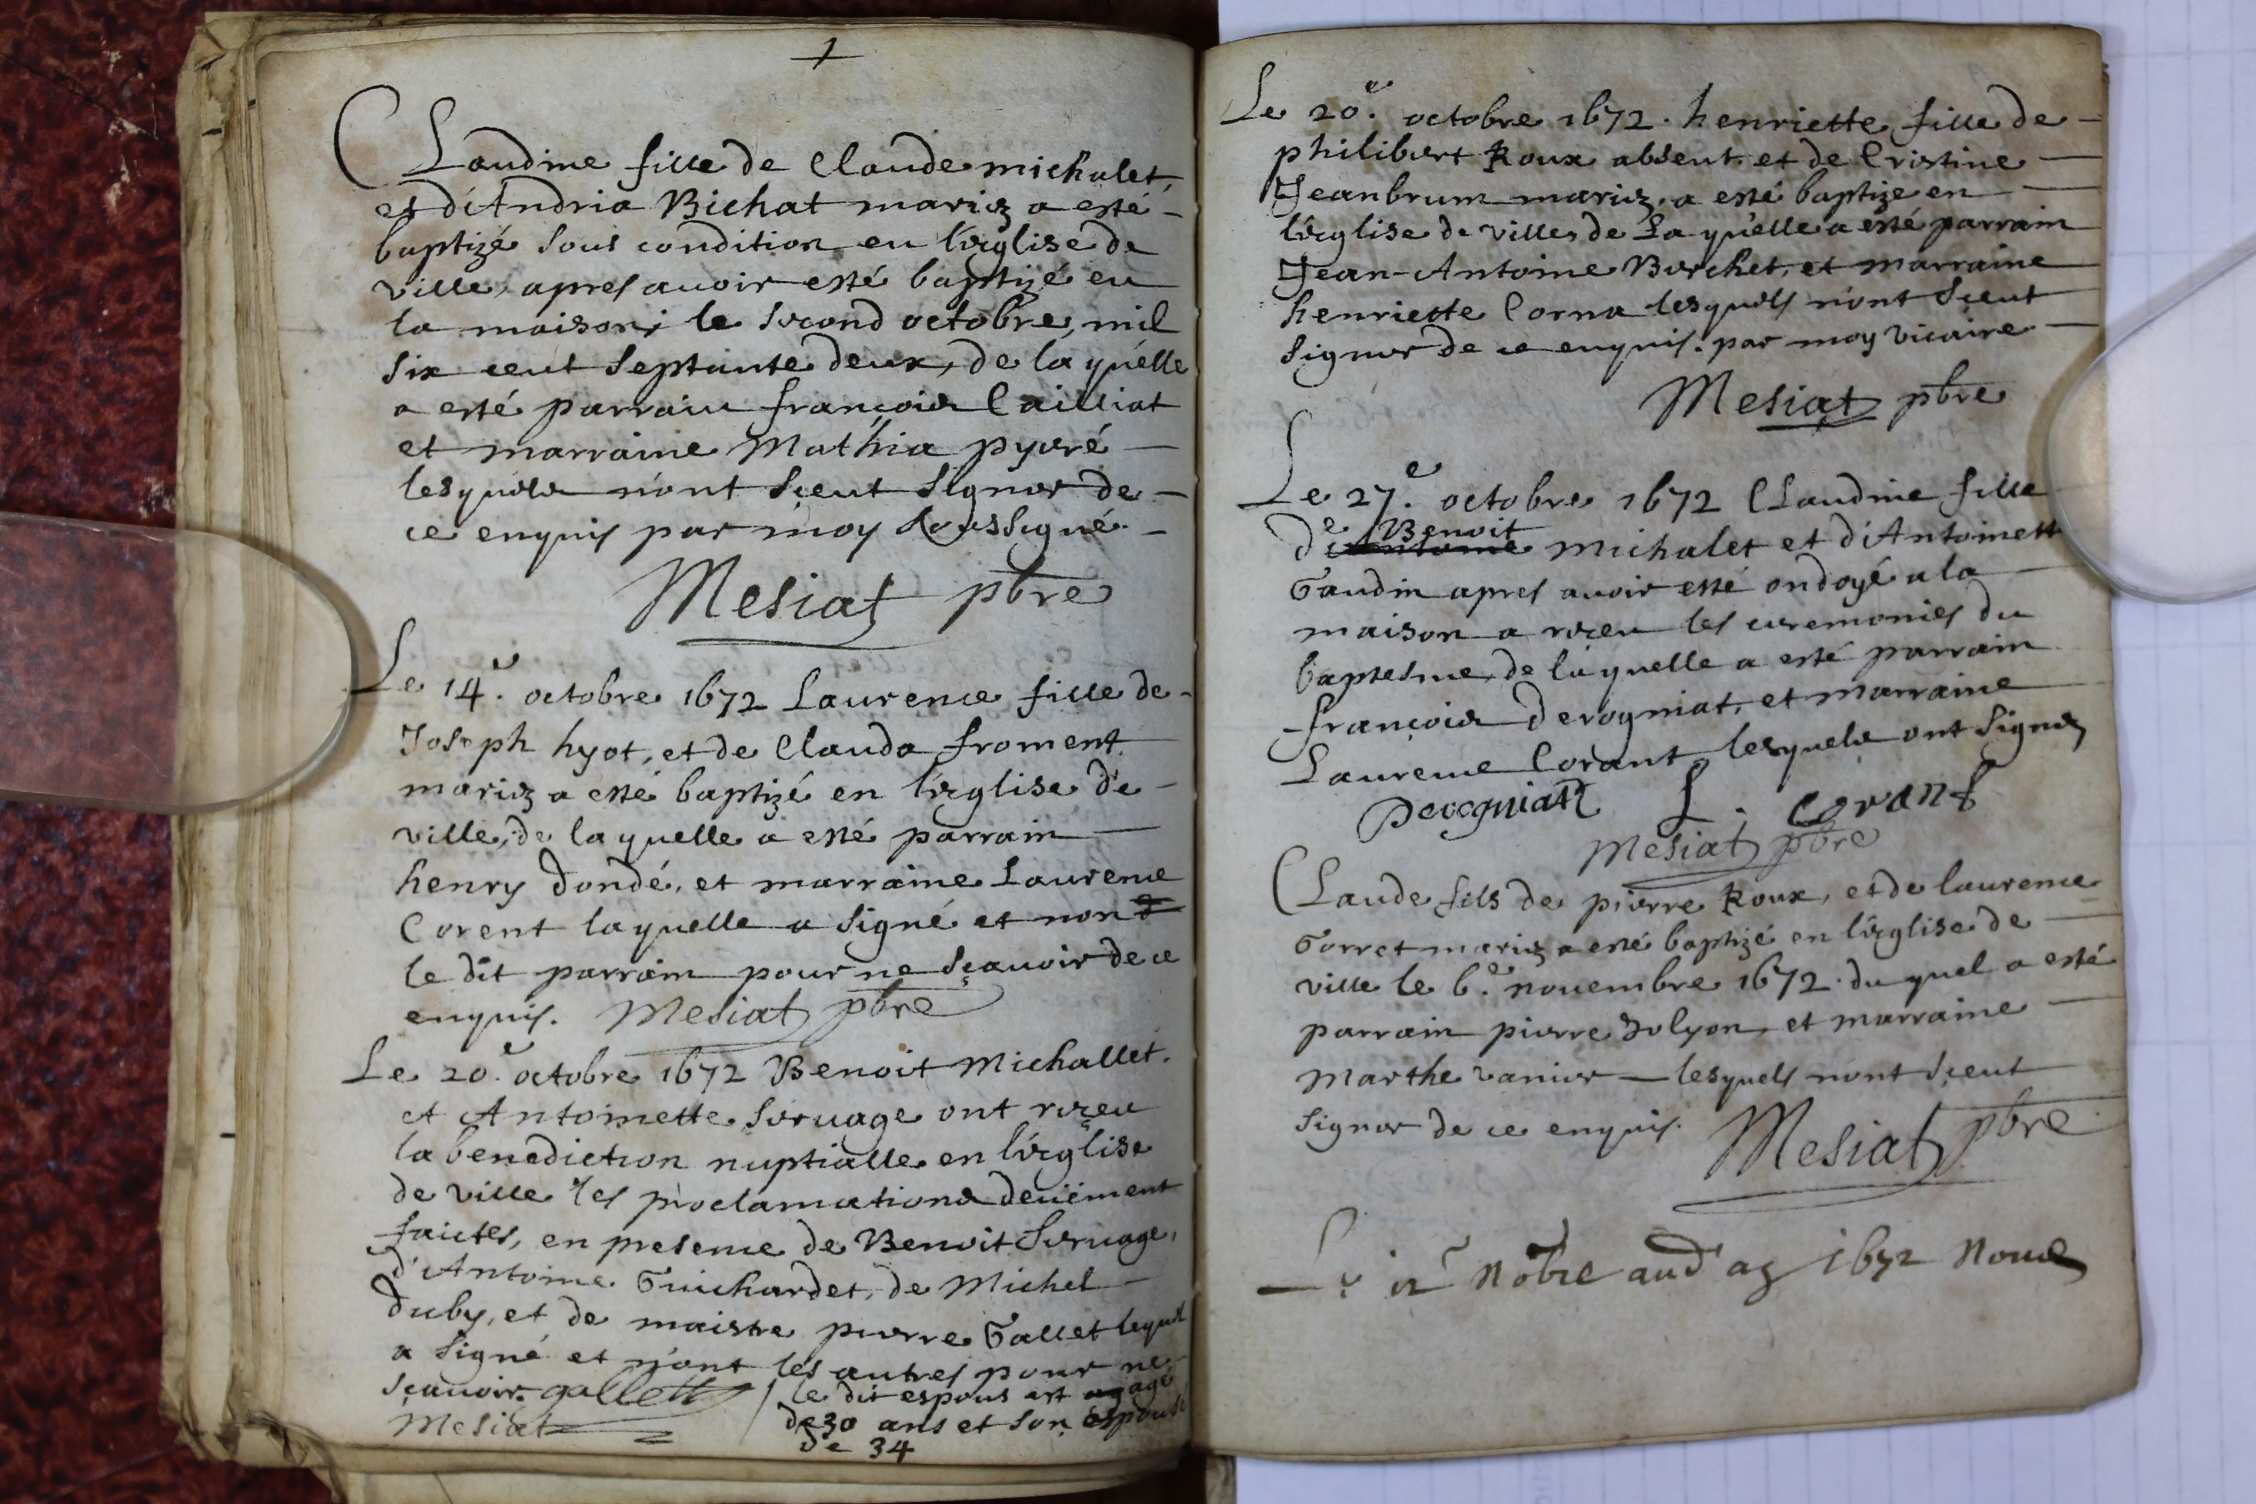 Claudine fille de Claude michalet,
et d'Andria Bichat mariez a esté
baptizé sous condition en l'église de
ville, apres avoir esté baptizé en
la maison, le second octobre, mil
six cent septante deux, de la quelle
a esté parrain françois Cailliat
et marraine Mathia pyvré
lesquels n'ont sçeut signer de
ce enquis par moy soussigné.
Mesiat pbre
Le 14e. octobre 1672 Laurence fille de
Joseph hyot, et de Clauda froment
mariez a esté baptizé en l'église de
ville, de la quelle a esté parrain
henry dondé, et marraine Laurence
Corent laquelle a signé et non
le dit parrain pour ne sçavoir de ce
enquis. Mesiat pbre
Le 20e. octobre 1672 Benoit Michallet.
et Antoinette servage ont reçeu
la benediction nuptialle en l'église
de ville les proclamations deüement
faictes, en presence de Benoit servage,
d'Antoine Guichardet, de Michel
duby, et de maistre pierre Gallet lequel
a signé et n'ont les autres pour ne
sçavoir. gallett / le dit espous est agé
Mesiat de 30 ans et son espouse
de 34
Le 20e. octobre 1672. henriette fille de
philibert Roux absent et de Cristine
Jeanbrum mariez. a esté baptize en
l'église de ville, de La quelle a esté parrain
Jean-Antoine Berchet, et marraine
henriette Corna lesquels n'ont sçeut
signer de ce enquis. par moy vicaire
Mesiat pbre
Le 27e. octobre 1672 Claudine fille
de Benoit michalet et d'Antoinett
Gaudin apres avoir esté ondoyé a la
maison a reçeu les ceremonies du
baptesme, de laquelle a esté parrain
françois derogniat, et marraine
Laurence Corant lesquels ont signez
Derogniat L. Corant
Mesiat pbre
Claude fils de pierre Roux, et de laurence
Gorret mariez a esté baptizé en l'église de
ville le 6e. novembre 1672. du quel a esté
parrain pierre Jolyon, et marraine
Marthe vanier — lesquels n'ont sçeut
signer de ce enquis.
Mesiat pbre
1672